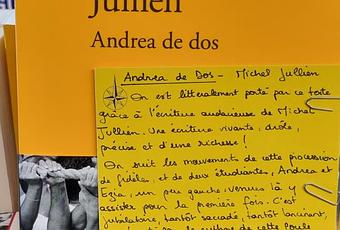 Jullien
Andrea de dos
Andrea de Dos - Michel Jullien
On est littéralement porté par ce texte
grâce à l'écriture audacieuse de Michel
Jullien. Une écriture vivante, drôle,
précise et d'une richesse !
On suit les mouvements de cette procession
de fidèles, et de deux étudiantes, Andrea et
Ezia, un peu gauche, venues là y
assister pour la première fois. C'est
jubilatoire, tantôt saccadé, tantôt lancinant,
rythme de cette foule